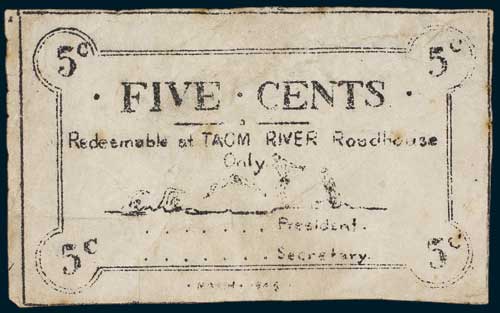 5c 5c
· FIVE · CENTS ·
Redeemable at TAOM RIVER Roadhouse
Only
. . . . . . . President.
. . . . . . . Secretary.
5c 5c